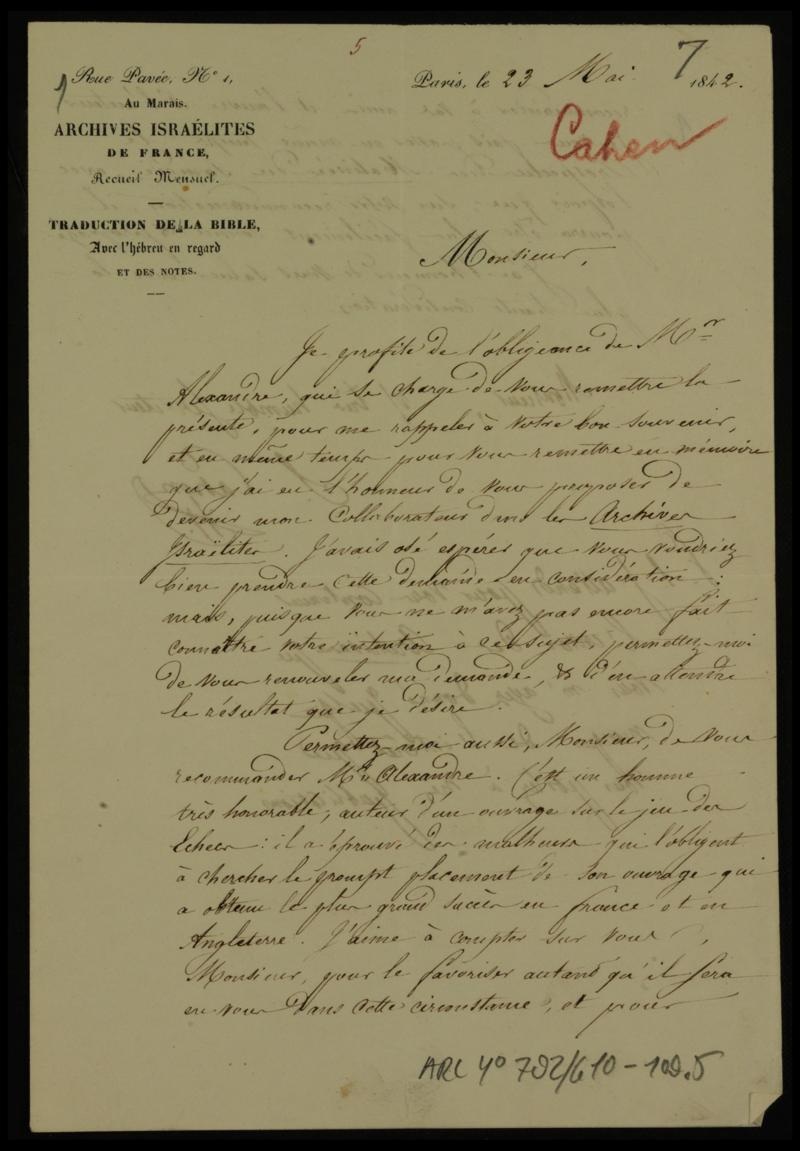 5
7
1
Rue Pavée, N° 1,
Au Marais.
ARCHIVES ISRAÉLITES
DE FRANCE,
Recueil Mensuel.
TRADUCTION DE LA BIBLE,
Avec l'hébreu en regard
ET DES NOTES.
Paris, le 23 Mai 1842.
Cahen
Monsieur,
Je profite de l'obligeance de Mr
Alexandre, qui se charge de vous remettre la
présente, pour me rappeler à votre bon souvenir,
et en même temps pour vous remettre en mémoire
que j'ai eu l'honneur de vous proposer de
devenir mon Collaborateur dans les Archives
Israëlites. J'avais osé espérer que vous voudriez
bien prendre cette demande en considération ;
mais, puisque vous ne m'avez pas encore fait
connaître votre intention à ce sujet, permettez-moi
de vous renouveler ma demande, & d'en attendre
le résultat que je désire.
Permettez-moi aussi, Monsieur, de vous
recommander Mr Alexandre. C'est un homme
très honorable, auteur d'un ouvrage sur le jeu des
Echecs : il a éprouvé des malheurs qui l'obligent
à chercher le prompt placement de son ouvrage qui
a obtenu le plus grand succès en france et en
Angleterre. J'aime à compter sur vous,
Monsieur, pour le favoriser autant qu'il sera
en vous dans cette circonstance, et pour
ARC 4° 792/610-109.5